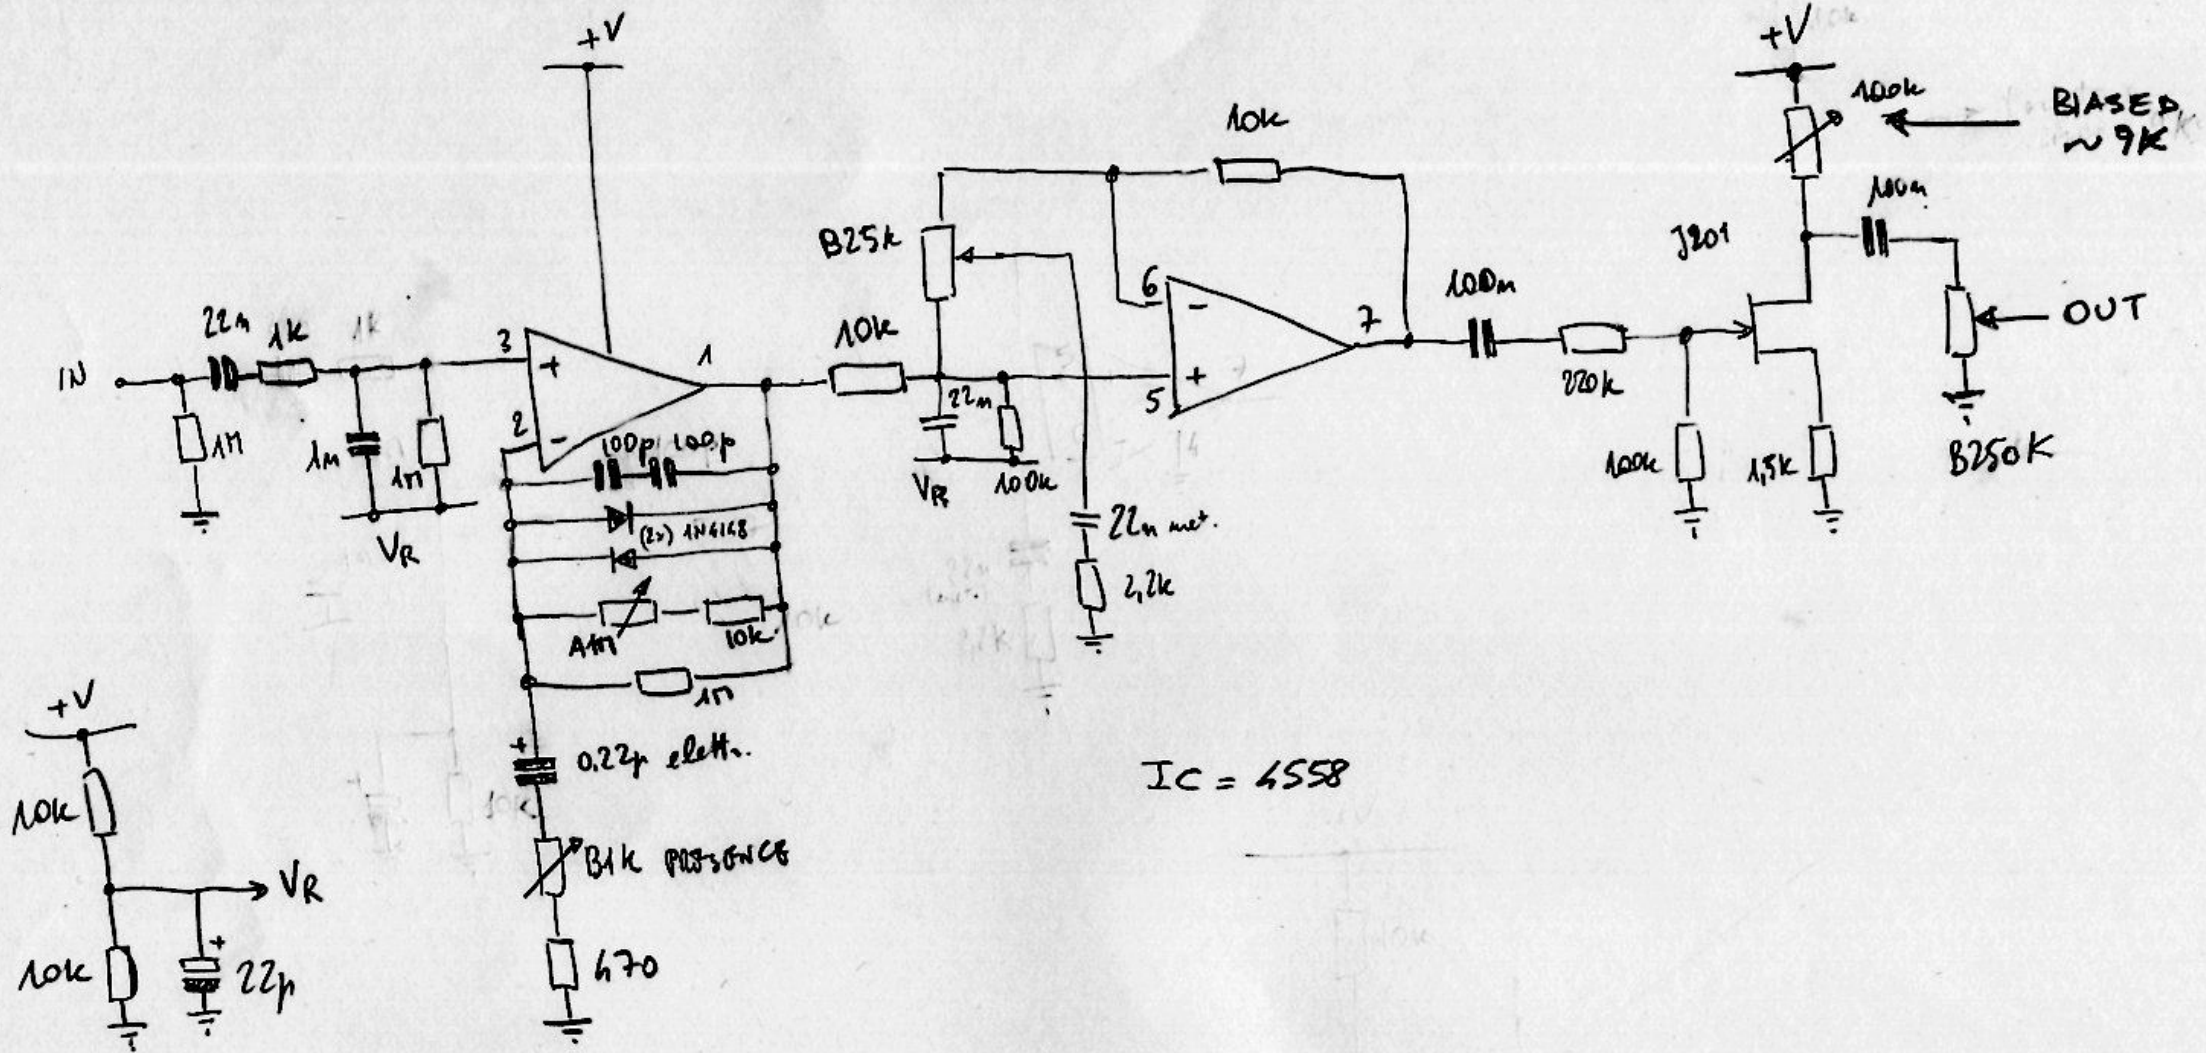 +V
+V
100k
BIASED
~ 9K
10k
100n
B25k
J201
6
-
7
100n
OUT
22n
1K
1K
3
+
1
10k
IN
5
+
22n
220k
1M
1n
1M
2
-
100p
100p
VR
100k
100k
1,5K
B250K
VR
(2x) 1N4148
22n met.
2,2k
A1M
10k
1M
+V
+
0.22µ elettr.
IC = 4558
10k
B1K PRESENCE
VR
+
10k
22µ
470